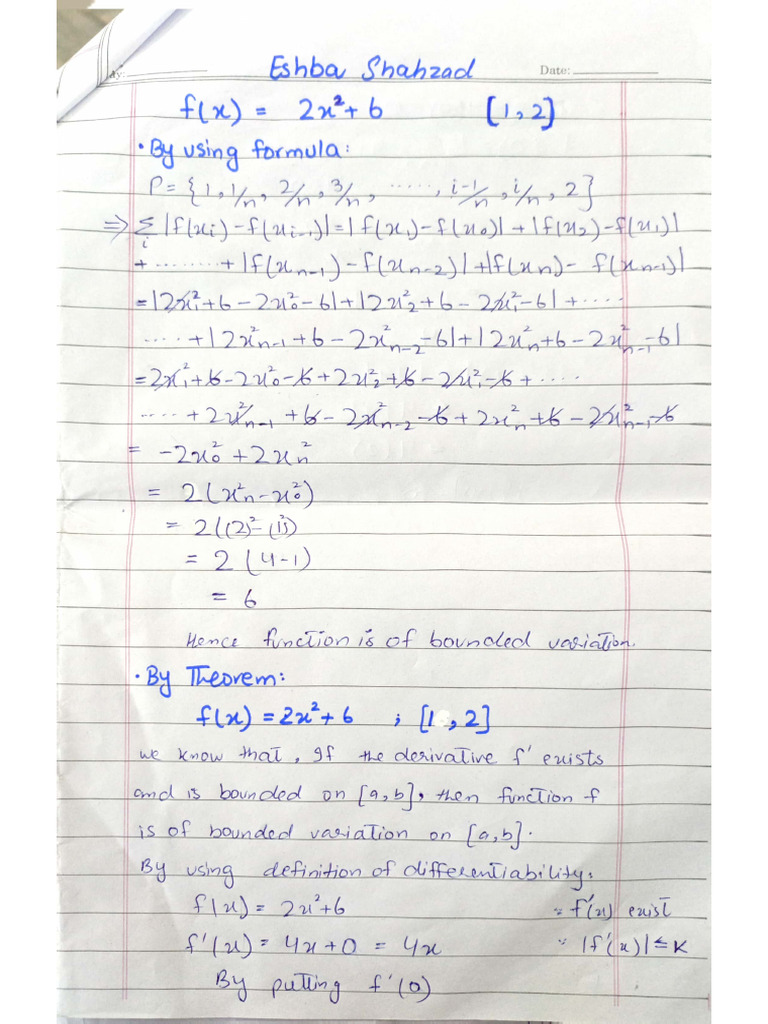 Eshba Shahzad Date:
f(x) = 2x²+6 [1,2]
• By using formula:
P= {1, 1/n, 2/n, 3/n, ....., i-1/n, i/n, 2}
⇒ Σ_i |f(x_i) - f(x_{i-1})| = |f(x_1) - f(x_0)| + |f(x_2) - f(x_1)|
+ ........ + |f(x_{n-1}) - f(x_{n-2})| + |f(x_n) - f(x_{n-1})|
= |2x_1²+6 - 2x_0² - 6| + |2x_2²+6 - 2x_1² - 6| + ....
.... + |2x²_{n-1} + 6 - 2x²_{n-2} - 6| + |2x²_n + 6 - 2x²_{n-1} - 6|
= 2x_1² + 6 - 2x_0² - 6 + 2x_2² + 6 - 2x_1² - 6 + ....
.... + 2x²_{n-1} + 6 - 2x²_{n-2} - 6 + 2x²_n + 6 - 2x²_{n-1} - 6
= -2x_0² + 2x_n²
= 2(x²_n - x_0²)
= 2((2)² - (1)²)
= 2(4-1)
= 6
Hence function is of bounded variation.
• By Theorem:
f(x) = 2x²+6 ; [1,2]
we know that, If the derivative f' exists
and is bounded on [a,b], then function f
is of bounded variation on [a,b].
By using definition of differentiability:
f(x) = 2x²+6 ∵ f'(x) exist
f'(x) = 4x+0 = 4x ∵ |f'(x)| ≤ K
By putting f'(0)